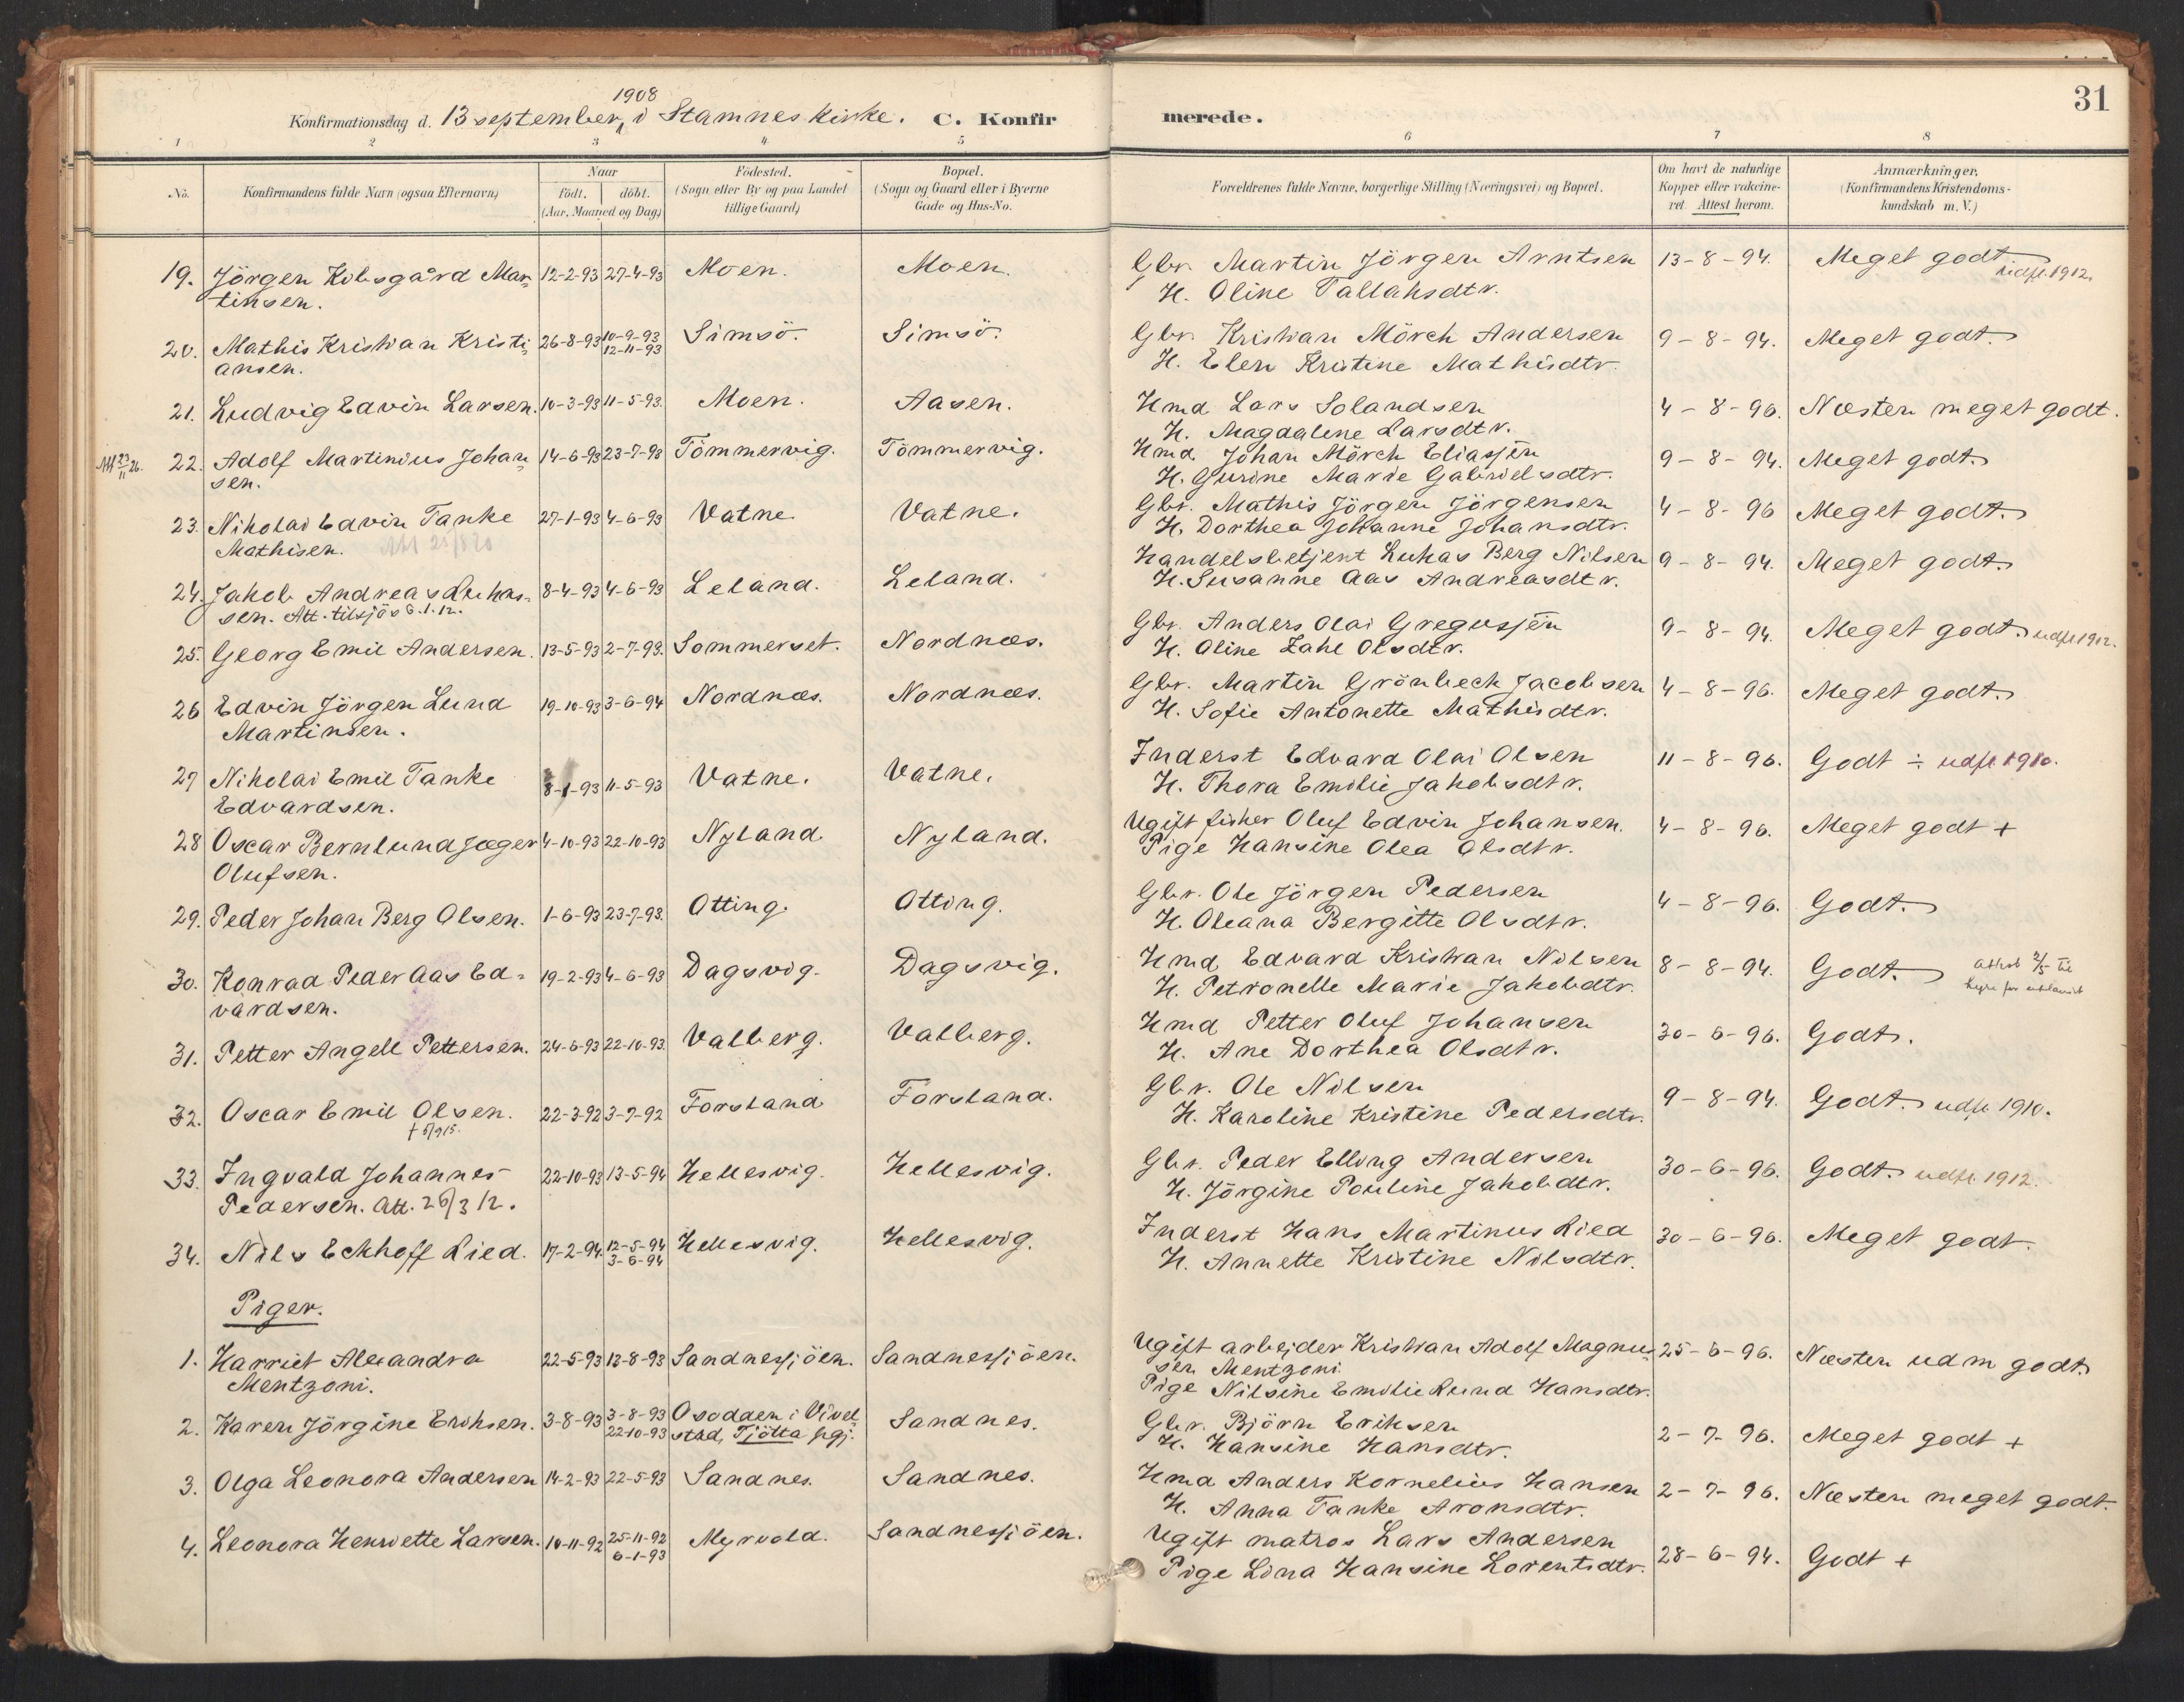 1908
Konfirmationsdag d. 13 september, i Stamnes kirke. C. Konfirmerede.
31
1 2 3 4 5 6 7 8
No.
Konfirmandens fulde Navn (ogsaa Efternavn)
Naar
födt. döbt.
(Aar, Maaned og Dag)
Födested.
(Sogn eller By og paa Landet
tillige Gaard)
Bopæl.
(Sogn og Gaard eller i Byerne
Gade og Hus-No.
Forældrenes fulde Navne, borgerlige Stilling (Næringsvei) og Bopæl.
Om havt de naturlige
Kopper eller vakcine-
ret. Attest herom.
Anmærkninger.
(Konfirmandens Kristendoms-
kundskab m. V.)
19. Jörgen Kibsgård Mar- 12-2-93 27-4-93 Moen. Moen. Gbr. Martin Jörgen Arntsen 13-8-94. Meget godt. udfl. 1912.
tinsen. H. Oline Tallaksdtr.
20. Mathis Kristian Kristi- 26-8-93 10-9-93 Simsö. Simsö. Gbr. Kristian Mörch Andersen 9-8-94. Meget godt.
ansen. 12-11-93 H. Elen Kristine Mathisdtr.
21. Ludvig Edvin Larsen. 10-3-93 11-5-93. Moen. Aasen. Hmd Lars Solandsen 4-8-96. Næsten meget godt.
H. Magdalene Larsdtr.
22. Adolf Martinius Johan- 14-6-93 23-7-93 Tömmervig. Tömmervig. Hmd Johan Mörch Eliassen 9-8-94. Meget godt.
sen. H. Gurine Marie Gabrielsdtr.
23. Nikolai Edvin Tanke 27-1-93 4-6-93 Vatne. Vatne. Gbr. Mathis Jörgen Jörgensen 4-8-96 Meget godt.
Mathisen. H. Dorthea Johanne Johansdtr.
24. Jakob Andreas Lukas- 8-4-93 4-6-93 Leland. Leland. Handelsbetjent Lukas Berg Nilsen 9-8-94. Meget godt.
sen. Att. tilsjös 6.1.12. H. Susanne Aas Andreasdtr.
25. Georg Emil Andersen. 13-5-93 2-7-93. Sommerset. Nordnæs. Gbr. Anders Olai Gregussen 9-8-94. Meget godt. udfl. 1912.
H. Oline Zahl Olsdtr.
26 Edvin Jörgen Lund 19-10-93 3-6-94 Nordnæs. Nordnæs. Gbr. Martin Grönbeck Jacobsen 4-8-96. Meget godt.
Martinsen. H. Sofie Antonette Mathisdtr.
27 Nikolai Emil Tanke 8-1-93 11-5-93 Vatne. Vatne. Inderst Edvard Olai Olsen 11-8-96. Godt ÷ udfl. 1910.
Edvardsen. H. Thora Emilie Jakobsdtr.
28 Oscar Bernlund Jæger 4-10-93 22-10-93 Nyland. Nyland. Ugift fisker Oluf Edvin Johansen. 4-8-96. Meget godt +
Olufsen. Pige Hansine Olea Olsdtr.
29. Peder Johan Berg Olsen. 1-6-93 23-7-93. Otting. Otting. Gbr. Ole Jörgen Pedersen 4-8-96. Godt.
H. Oleana Bergitte Olsdtr.
30. Konrad Peder Aas Ed- 19-2-93 4-6-93 Dagsvig. Dagsvig. Hmd Edvard Kristian Nilsen 8-8-94. Godt.
vardsen. H. Petronelle Marie Jakobdtr.
31. Petter Angell Pettersen. 24-6-93 22-10-93. Valberg. Valberg. Hmd Petter Oluf Johansen 30-6-96. Godt.
H. Ane Dorthea Olsdtr.
32. Oscar Emil Olsen. 22-3-92 3-7-92 Forsland. Forsland. Gbr. Ole Nilsen 9-8-94. Godt. udfl. 1910.
H. Karoline Kristine Pedersdtr.
33. Ingvald Johannes 22-10-93 13-5-94 Hellesvig. Hellesvig. Gbr. Peder Elling Andersen 30-6-96. Godt. udfl. 1912.
Pedersen. Att. 26/3 12. H. Jörgine Pouline Jakobdtr.
34. Nils Eckhoff Lied. 17-2-94. 12-5-94 Hellesvig. Hellesvig. Inderst Hans Martinus Lied 30-6-96. Meget godt.
3-6-94 H. Annette Kristine Nilsdtr.
Piger.
1. Harriet Alexandra 22-5-93 13-8-93 Sandnessjöen. Sandnessjöen. Ugift arbejder Kristian Adolf Magnus- 25-6-96. Næsten udm godt.
Mentzoni. sen Mentzoni
Pige Nilsine Emilie Lund Hansdtr.
2. Karen Jörgine Eriksen. 3-8-93 3-8-93 Osodden i Vivel- Sandnes. Gbr. Björn Eriksen 2-7-96. Meget godt +
22-10-93 stad, Tjötta pgj. H. Hansine Hansdtr.
3. Olga Leonora Andersen 14-2-93 22-5-93 Sandnes. Sandnes. Hmd Anders Kornelius Hansen 2-7-96. Næsten meget godt.
H. Anna Tanke Aronsdtr.
4. Leonora Henriette Larsen. 10-11-92 25-11-92 Myrvold. Sandnessjöen. Ugift matros Lars Andersen 28-6-94. Godt +
6-1-93 Pige Lina Hansine Lorentsdtr.